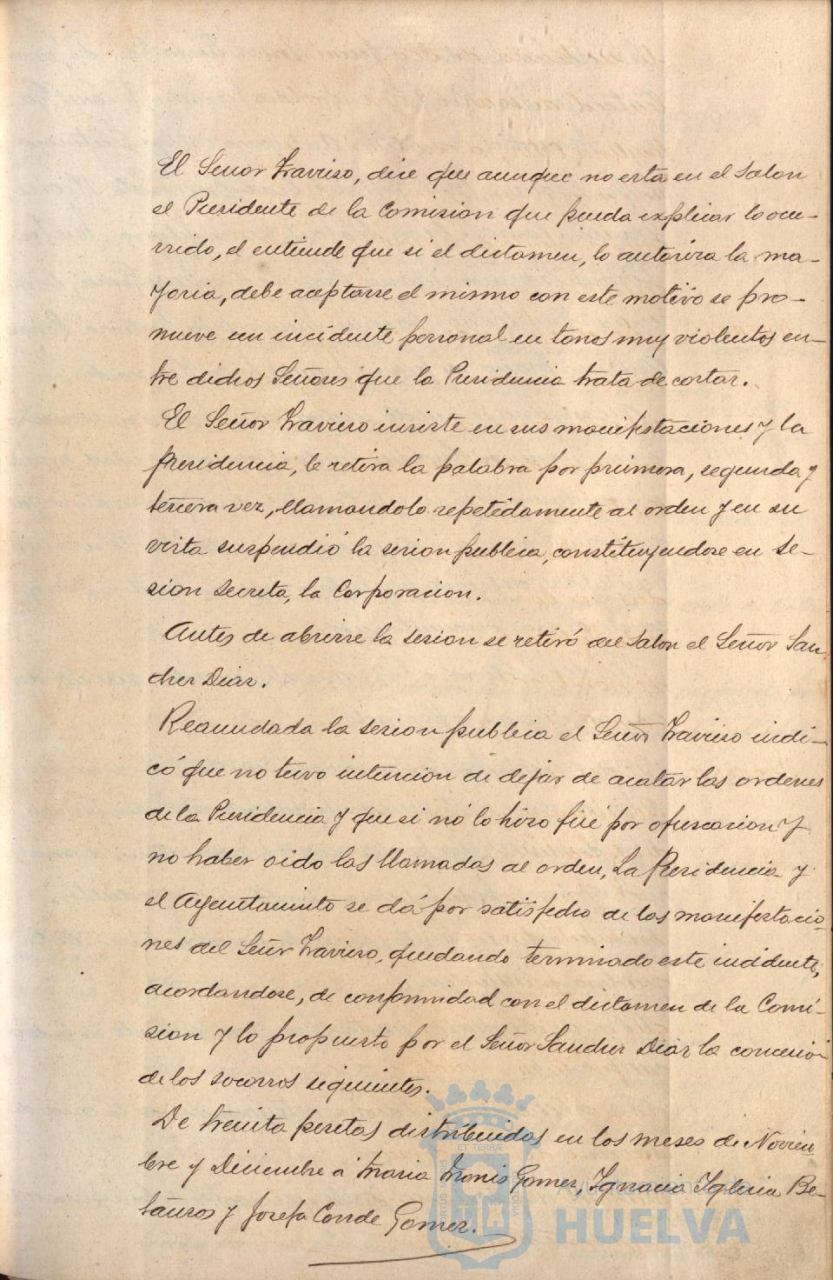 El Señor Travieso, dice que aunque no esta en el Salon
el Presidente de la Comision que pueda explicar lo ocu-
rrido, el entiende que si el dictamen, lo autoriza la ma-
yoria, debe aceptarse el mismo con este motivo se pro-
mueve un incidente personal en tonos muy violentos en-
tre dichos Señores que la Presidencia trata de cortar.
El Señor Travieso insiste en sus manifestaciones y la
Presidencia, le retira la palabra por primera, segunda y
tercera vez, llamandolo repetidamente al orden y en su
vista suspendió la sesion publica, constituyendose en Se-
sion Secreta, la Corporacion.
Antes de abrirse la sesion se retiró del Salon el Señor San
chez Diaz.
Reanudada la sesion publica el Señor Travieso indi-
có que no tuvo intencion de dejar de acatar las ordenes
de la Presidencia y que si nó lo hizo fué por ofuscasion y
no haber oido las llamadas al orden, La Presidencia y
el Ayuntamiento se dá por satisfecho de las manifestacio-
nes del Señor Travieso, quedando terminado este incidente,
acordandose, de conformidad con el dictamen de la Comi-
sion y lo propuesto por el Señor Sanchez Diaz la concesión
de los socorros siguientes.
De treinta pesetas distribuidas en los meses de Noviem
bre y Diciembre á Maria Gomez, Ignacia Iglesia Be-
y Josefa Conde Gomez.
HUELVA